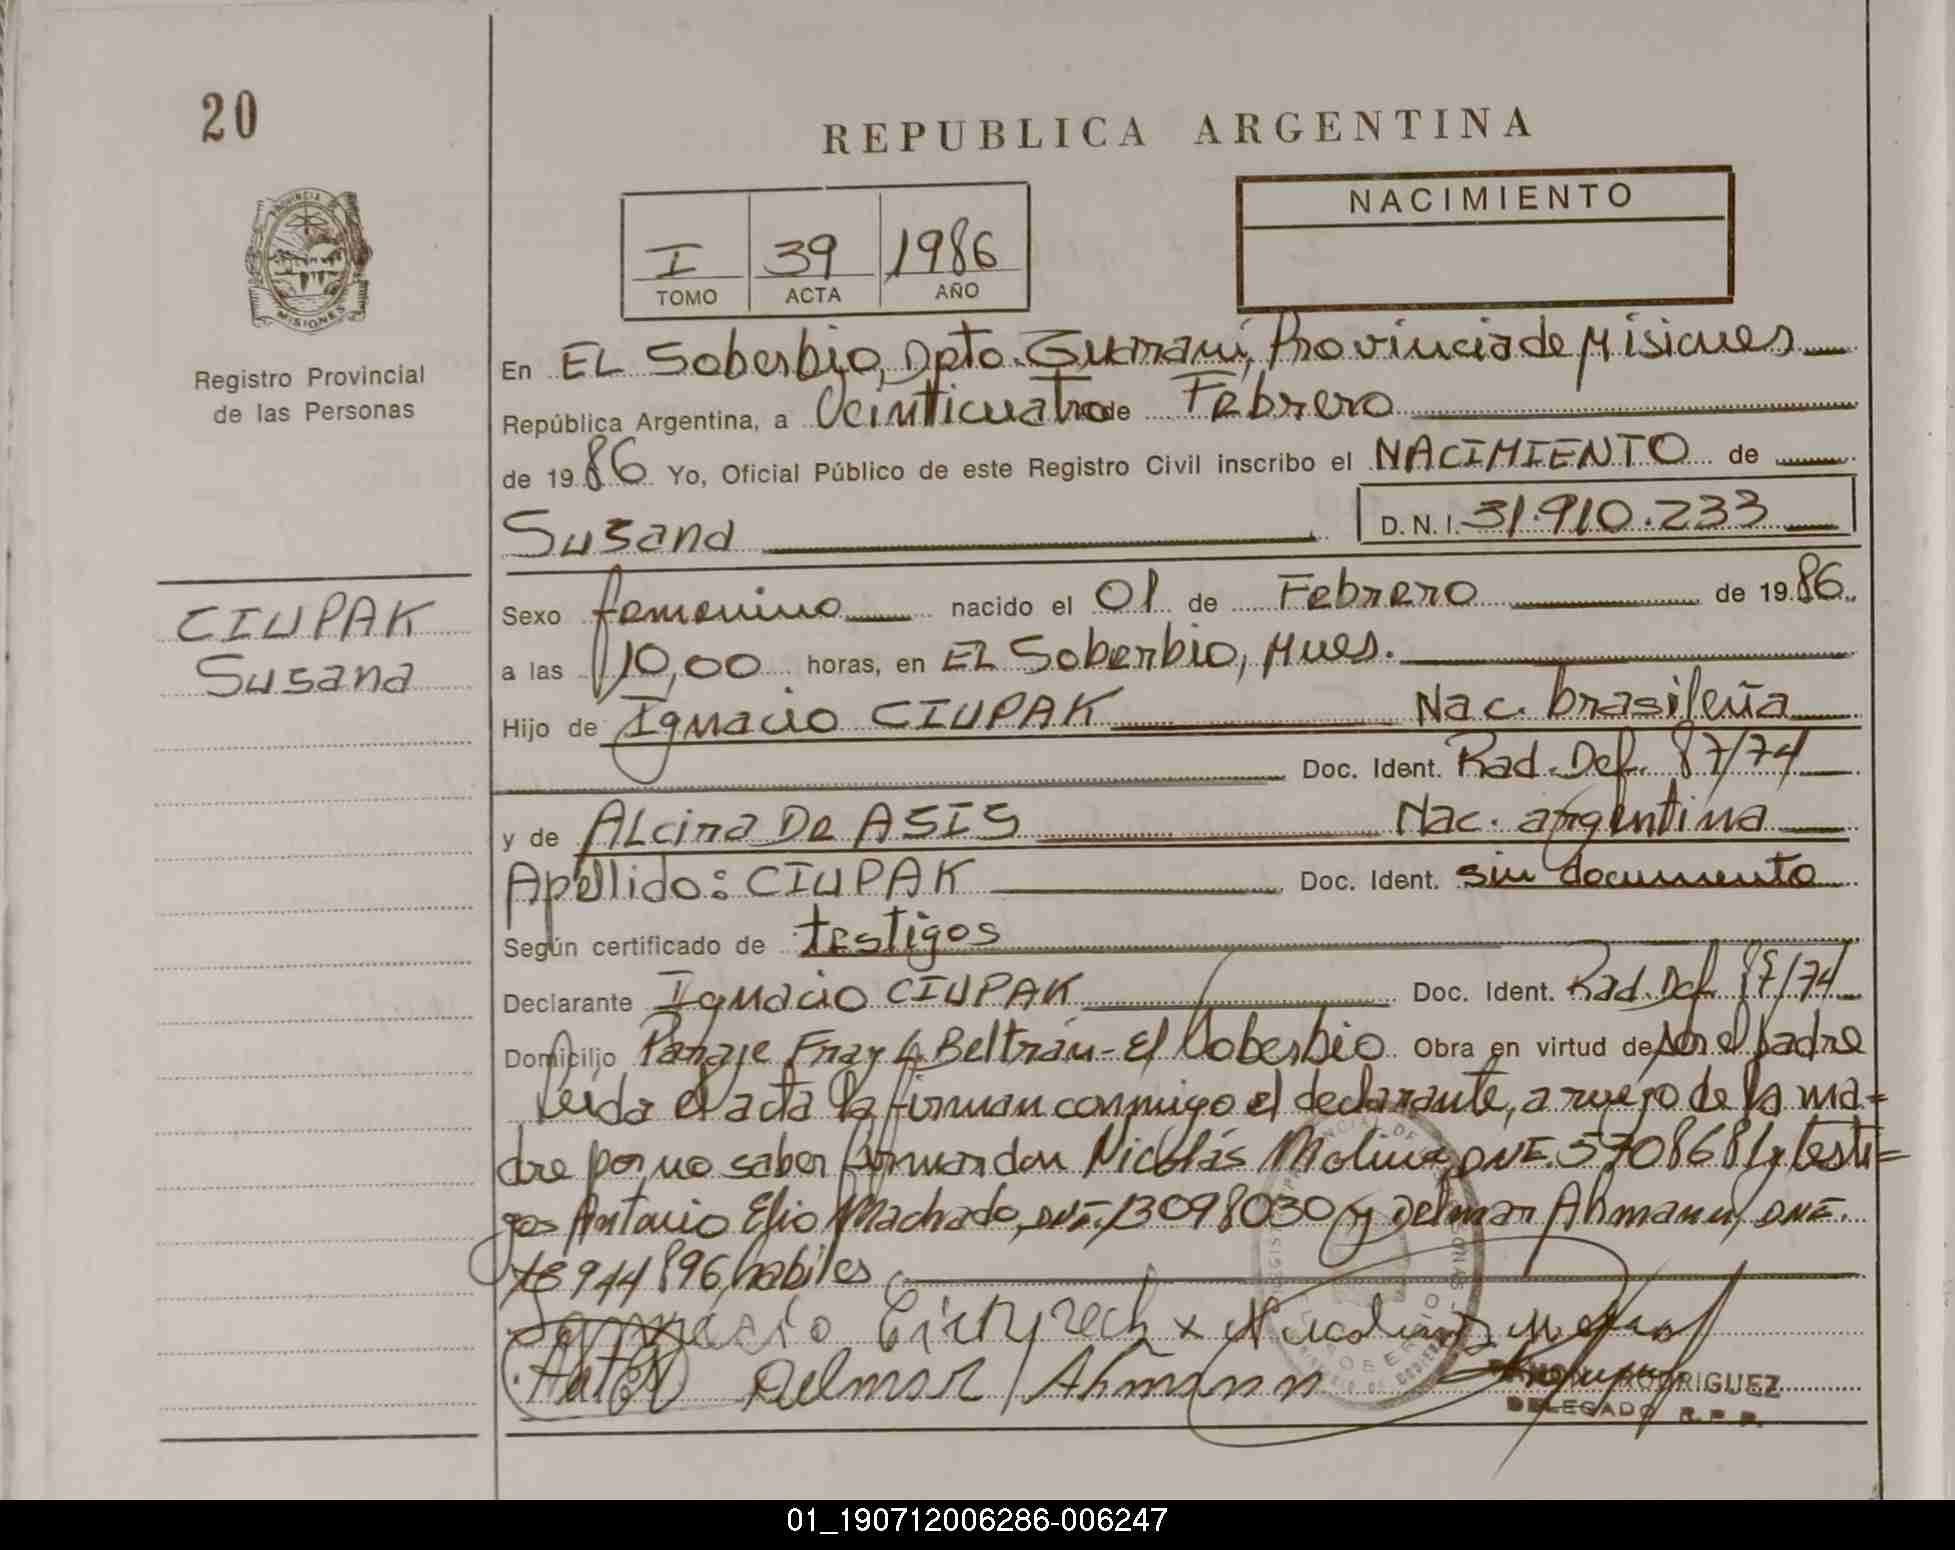 20
REPUBLICA ARGENTINA
PROVINCIA DE
MISIONES
Registro Provincial
de las Personas
I 39 1986
TOMO ACTA AÑO
NACIMIENTO
En EL Soberbio, Dpto. Guaraní, Provincia de Misiones
República Argentina, a Veinticuatro de Febrero
de 1986 Yo, Oficial Público de este Registro Civil inscribo el NACIMIENTO de
Susana D.N.I. 31.910.233
CIUPAK
Susana
Sexo femenino nacido el 01 de Febrero de 1986
a las 10,00 horas, en EL Soberbio, Mnes.
Hijo de Ignacio CIUPAK Nac. brasileña
Doc. Ident. Rad. Def. 87/74
y de ALcira De ASIS Nac. argentina
Apellido: CIUPAK Doc. Ident. sin documento
Según certificado de testigos
Declarante Ignacio CIUPAK Doc. Ident. Rad. Def. 87/74
Domicilio Paraje Fray L. Beltrán - El Soberbio Obra en virtud de ser el padre
Leida el acta la firman conmigo el declarante, a ruego de la ma=
dre por no saber firmar don Nicolás Molina, DNI. 5708681 y testi=
gos Antonio Elio Machado, DNI. 13098030 y Delmar Ahmann, DNI.
18944896, habiles
Delmar Ahmann
RODRIGUEZ
DELEGADO R.P.P.
01_190712006286-006247